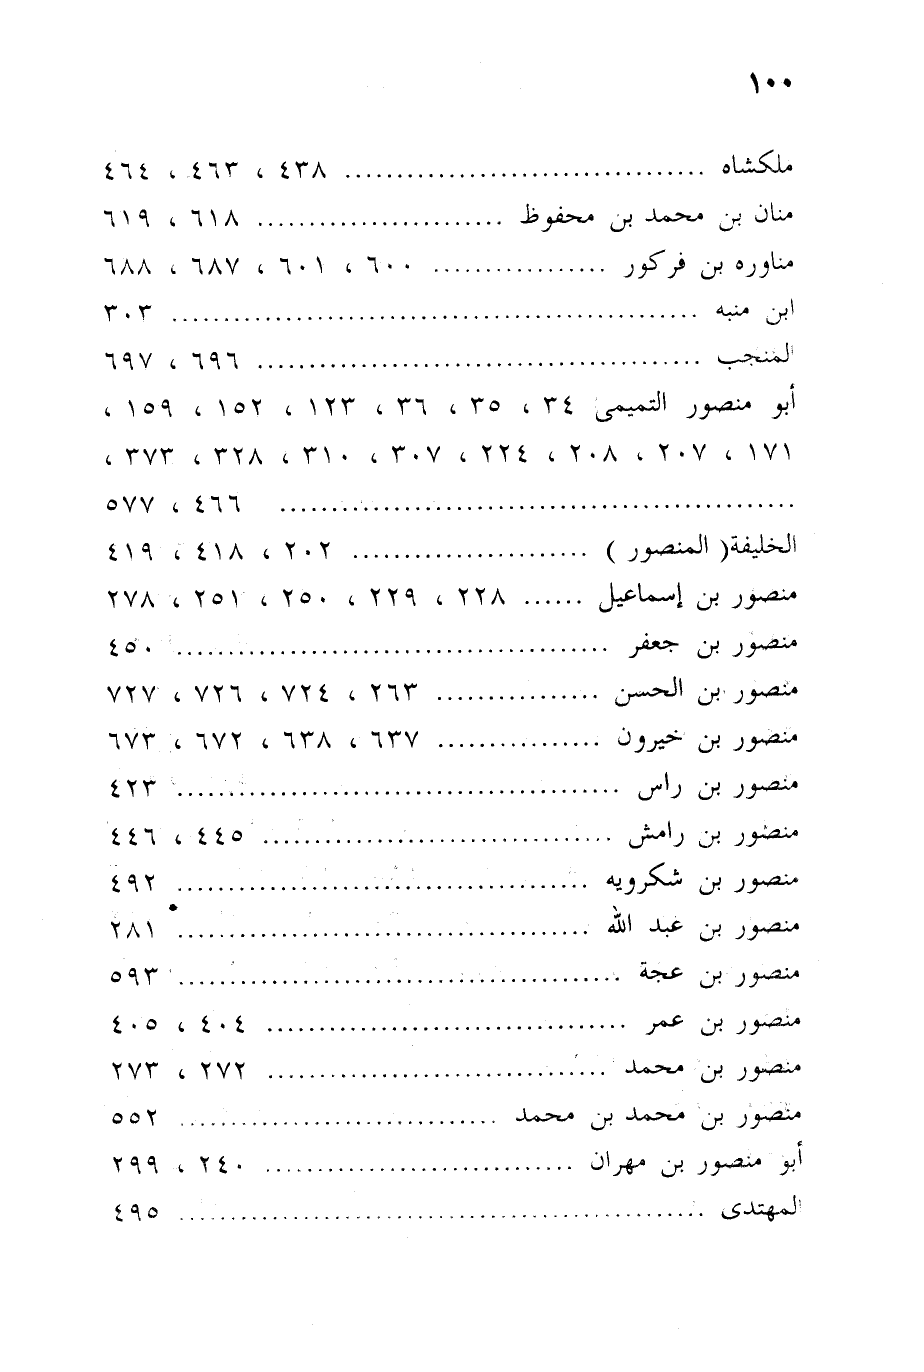 ١٠٠
ملكشاه .................................. ٤٣٨ ، ٤٦٣ ، ٤٦٤
منان بن محمد بن محفوظ ........................ ٦١٨ ، ٦١٩
مناوره بن فركور ................. ٦٠٠ ، ٦٠١ ، ٦٨٧ ، ٦٨٨
ابن منبه .................................................. ٣٠٣
المنجب .......................................... ٦٩٦ ، ٦٩٧
أبو منصور التميمى ٣٤ ، ٣٥ ، ٣٦ ، ١٢٣ ، ١٥٢ ، ١٥٩ ،
١٧١ ، ٢٠٧ ، ٢٠٨ ، ٢٢٤ ، ٣٠٧ ، ٣١٠ ، ٣٢٨ ، ٣٧٣ ،
................................................. ٤٦٦ ، ٥٧٧
الخليفة( المنصور ) ....................... ٢٠٢ ، ٤١٨ ، ٤١٩
منصور بن إسماعيل ...... ٢٢٨ ، ٢٢٩ ، ٢٥٠ ، ٢٥١ ، ٢٧٨
منصور بن جعفر ......................................... ٤٥٠
منصور بن الحسن ................ ٢٦٣ ، ٧٢٤ ، ٧٢٦ ، ٧٢٧
منصور بن خيرون ................ ٦٣٧ ، ٦٣٨ ، ٦٧٢ ، ٦٧٣
منصور بن راس .......................................... ٤٢٣
منصور بن رامش .................................. ٤٤٥ ، ٤٤٦
منصور بن شكرويه ....................................... ٤٩٢
منصور بن عبد الله ....................................... ٢٨١
منصور بن عجة .......................................... ٥٩٣
منصور بن عمر ................................... ٤٠٤ ، ٤٠٥
منصور بن محمد ................................. ٢٧٢ ، ٢٧٣
منصور بن محمد بن محمد ............................... ٥٥٢
أبو منصور بن مهران .............................. ٢٤٠ ، ٢٩٩
المهتدى .................................................. ٤٩٥